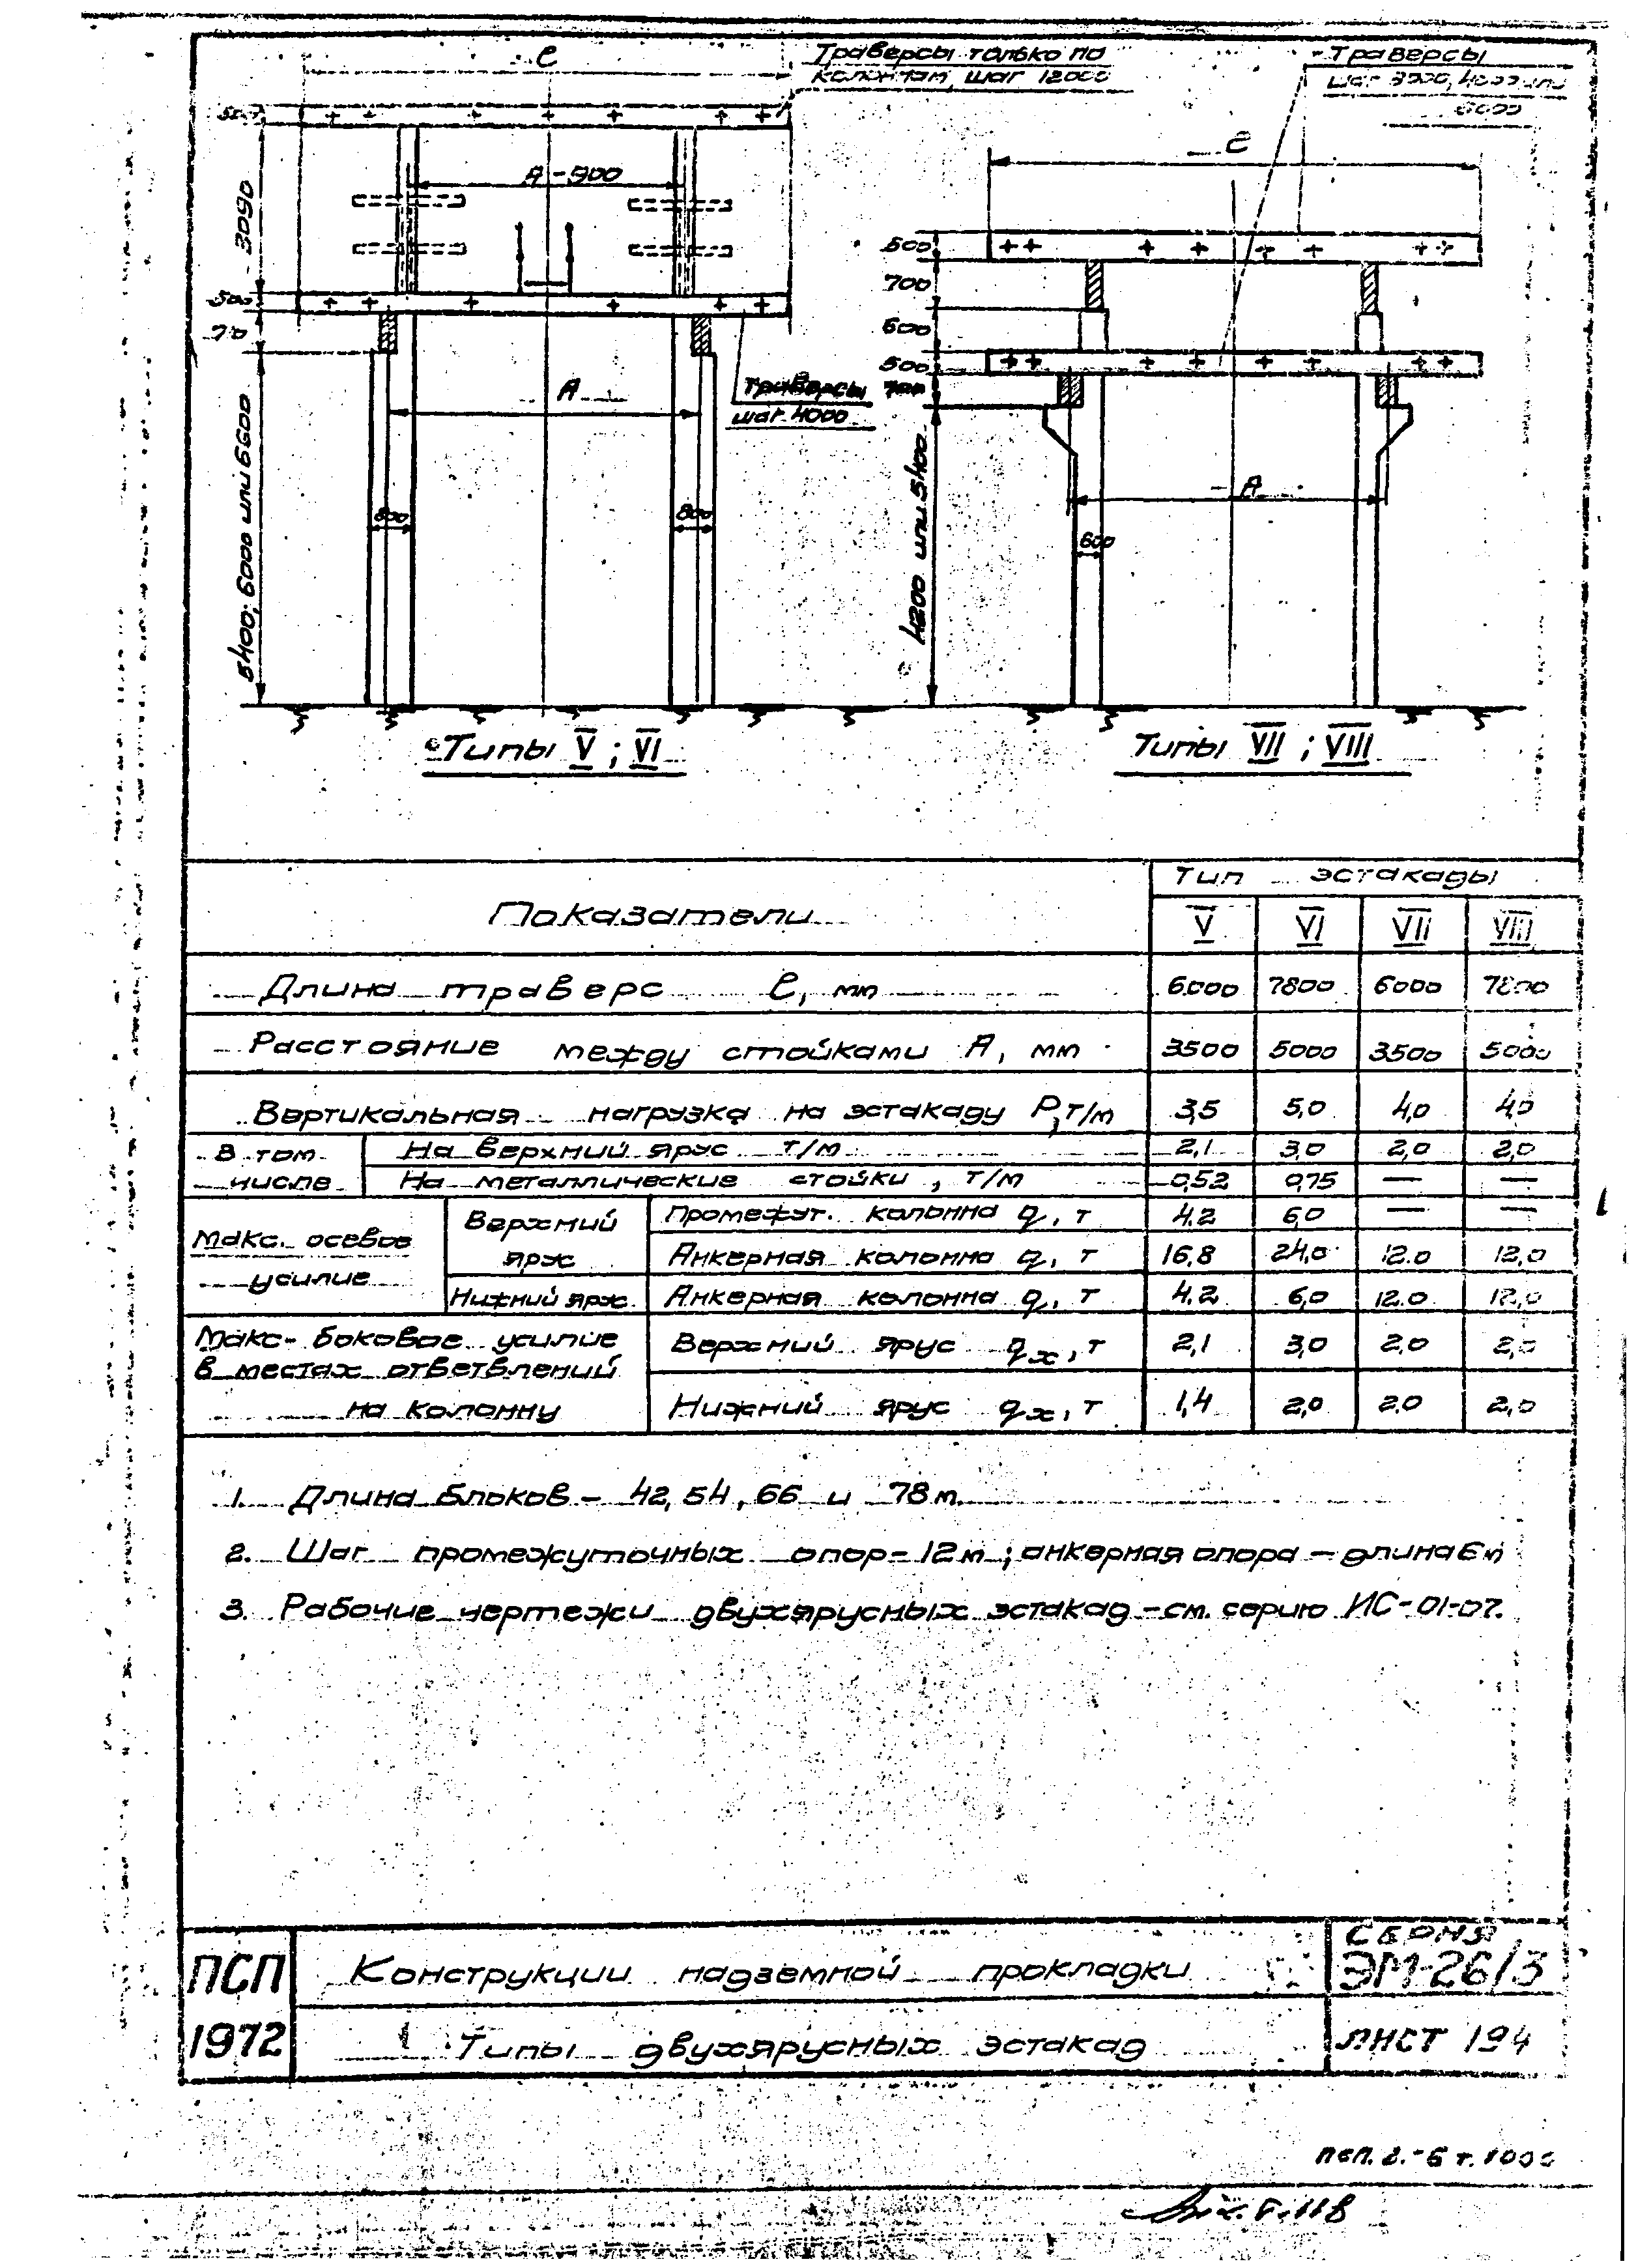 е
Траверсы только по
колоннам, шаг 12000
Траверсы
шаг 3000, 4000 или
6000
500
А-900
3090
500
5400; 6000 или 6600
А
Траверсы
шаг 4000
800
800
е
500
700
600
500
700
4200 или 5400
А
600
Типы V ; VI
Типы VII ; VIII
Показатели
Тип эстакады
V VI VII VIII
Длина траверс е, мм 6000 7800 6000 7800
Расстояние между стойками А, мм 3500 5000 3500 5000
Вертикальная нагрузка на эстакаду Р, т/м 3,5 5,0 4,0 4,0
В том
числе
На верхний ярус т/м 2,1 3,0 2,0 2,0
На металлические стойки, т/м 0,52 0,75 — —
Макс. осевое
усилие
Верхний
ярус
Промежут. колонна q, т 4.2 6,0 — —
Анкерная колонна q, т 16,8 24,0 12.0 12,0
Нижний ярус Анкерная колонна q, т 4.2 6,0 12.0 12,0
Макс. боковое усилие
в местах ответвлений
на колонну
Верхний ярус qх, т 2,1 3,0 2.0 2,0
Нижний ярус qх, т 1,4 2,0 2.0 2,0
1. Длина блоков - 42, 54, 66 и 78 м.
2. Шаг промежуточных опор - 12 м; анкерная опора - длина 6 м
3. Рабочие чертежи двухярусных эстакад - см. серию ИС-01-07.
ПСП
1972
Конструкции надземной прокладки
Типы двухярусных эстакад
СЕРИЯ
ЭМ-26/3
ЛИСТ 194